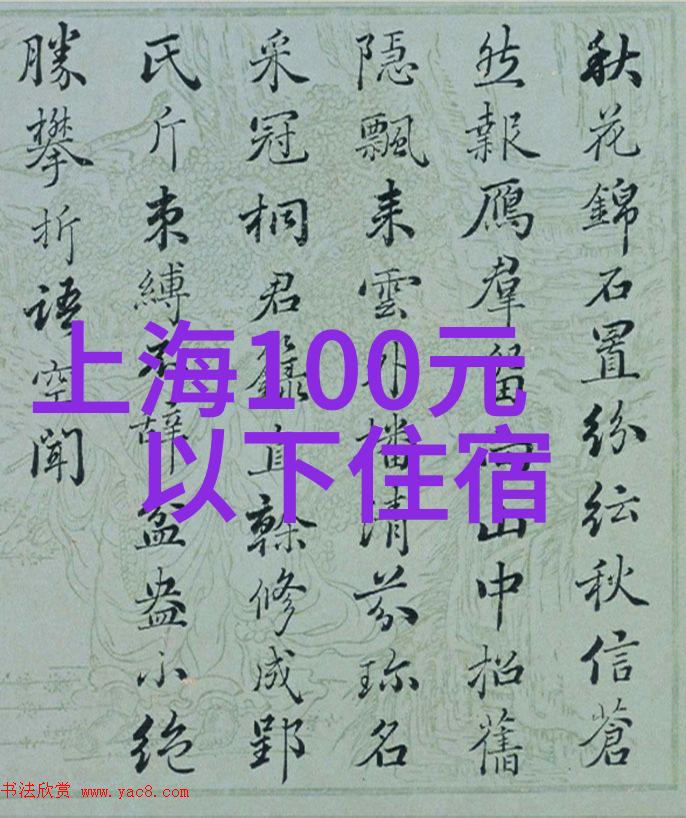 秋花錦石置紛紜秋信蒼
然報鴈羣留向山中招舊
隱飄来雲外播清芬珎名
采冠桐君錄直榦修成郢
氏斤束縛辭盆盎小絶
勝攀折語空聞
上海100元
以下住宿
书法欣赏 www.yac8.com